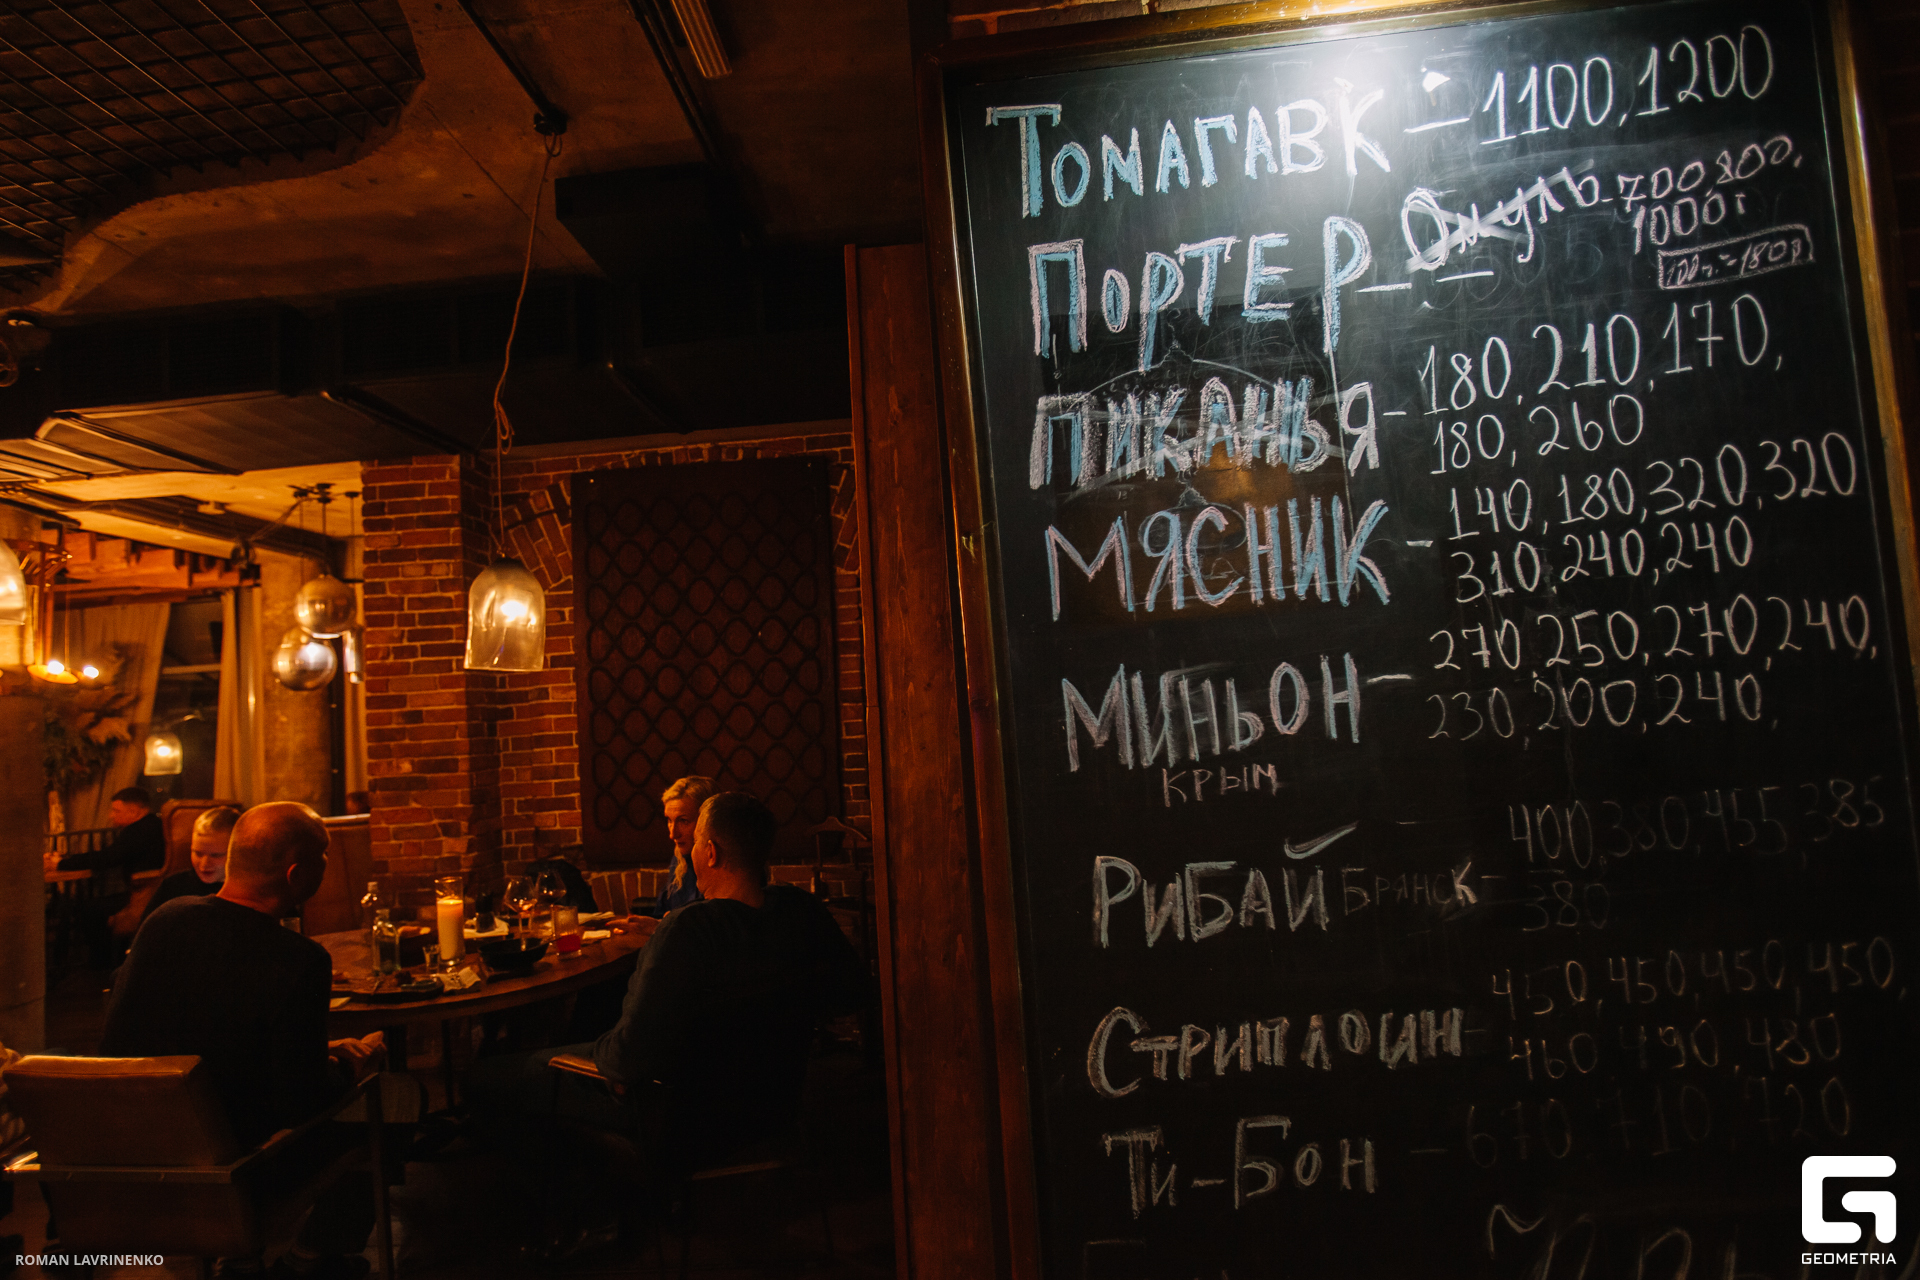 ТОМАГАВК - 1100, 1200
ПОРТЕР - Омуль - 700, 800,
1000г
100г. = 180р
ПИКАНЬЯ - 180, 210, 170,
180, 260
МЯСНИК - 140, 180, 320, 320
310, 240, 240
МИНЬОН - 270, 250, 270, 240,
230, 200, 240,
КРЫМ
РИБАЙ БРЯНСК - 400, 380, 455, 385
380
СТРИПЛОИН - 450, 450, 450, 450,
460, 490, 480
ТИ-БОН - 670, 710, 720
ROMAN LAVRINENKO
GEOMETRIA